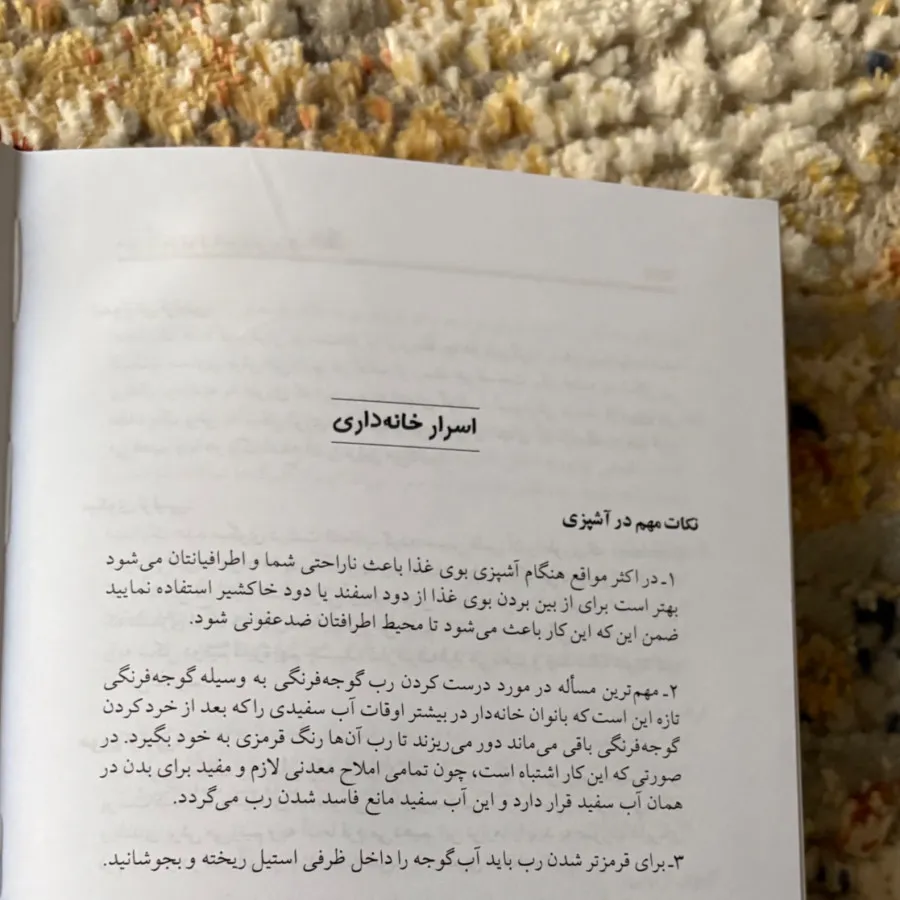 اسرار خانه‌داری
نکات مهم در آشپزی
۱ـ در اکثر مواقع هنگام آشپزی بوی غذا باعث ناراحتی شما و اطرافیانتان می‌شود
بهتر است برای از بین بردن بوی غذا از دود اسفند یا دود خاکشیر استفاده نمایید
ضمن این که این کار باعث می‌شود تا محیط اطرافتان ضدعفونی شود.
۲ـ مهم‌ترین مسأله در مورد درست کردن رب گوجه‌فرنگی به وسیله گوجه‌فرنگی
تازه این است که بانوان خانه‌دار در بیشتر اوقات آب سفیدی را که بعد از خرد کردن
گوجه‌فرنگی باقی می‌ماند دور می‌ریزند تا رب آن‌ها رنگ قرمزی به خود بگیرد. در
صورتی که این کار اشتباه است، چون تمامی املاح معدنی لازم و مفید برای بدن در
همان آب سفید قرار دارد و این آب سفید مانع فاسد شدن رب می‌گردد.
۳ـ برای قرمزتر شدن رب باید آب گوجه را داخل ظرفی استیل ریخته و بجوشانید.